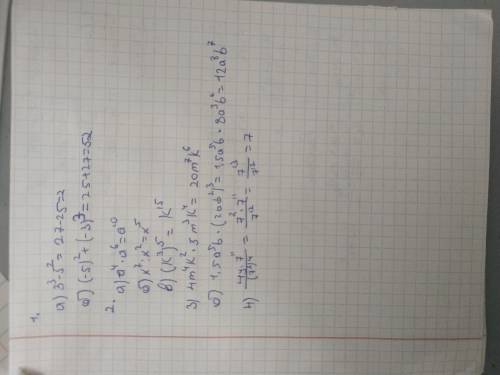 1.
а) 3³-5²= 27-25=2
б) (-5)²+(-3)³=25+27=52
2.
а) a⁴·a⁶=a¹⁰
б) x³·x²=x⁵
в) (K³)⁵= K¹⁵
3) 4m⁴K²·5m³K⁴= 20m⁷k⁶
б) 1,5a⁵b·(2ab²)³=1,5a⁵b·8a³b⁶=12a⁸b⁷
4) 49·7¹¹/(7³)⁴ = 7²·7¹¹/7¹² = 7¹³/7¹² = 7